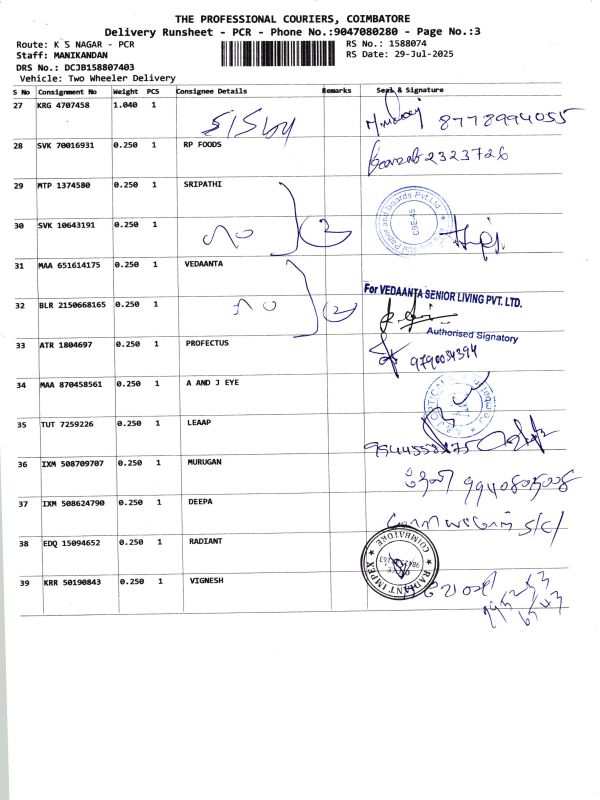 THE PROFESSIONAL COURIERS, COIMBATORE
Delivery Runsheet - PCR - Phone No.:9047080280 - Page No.:3
Route: K S NAGAR - PCR
RS No.: 1588074
Staff: MANIKANDAN
RS Date: 29-Jul-2025
DRS No.: DCJB158807403
Vehicle: Two Wheeler Delivery
S No Consignment No Weight PCS Consignee Details Remarks Seal & Signature
27 KRG 4707458 1.040 1 8778994055
28 SVK 70016931 0.250 1 RP FOODS 2323726
29 MTP 1374580 0.250 1 SRIPATHI
30 SVK 10643191 0.250 1 2
31 MAA 651614175 0.250 1 VEDAANTA
For VEDAANTA SENIOR LIVING PVT. LTD.
32 BLR 2150668165 0.250 1 2
Authorised Signatory
33 ATR 1804697 0.250 1 PROFECTUS 9790034394
34 MAA 870458561 0.250 1 A AND J EYE
35 TUT 7259226 0.250 1 LEAAP
36 IXM 508709707 0.250 1 MURUGAN
37 IXM 508624790 0.250 1 DEEPA S/C/
38 EDQ 15094652 0.250 1 RADIANT
RADIANT IMPEX COIMBATORE
39 KRR 50190843 0.250 1 VIGNESH